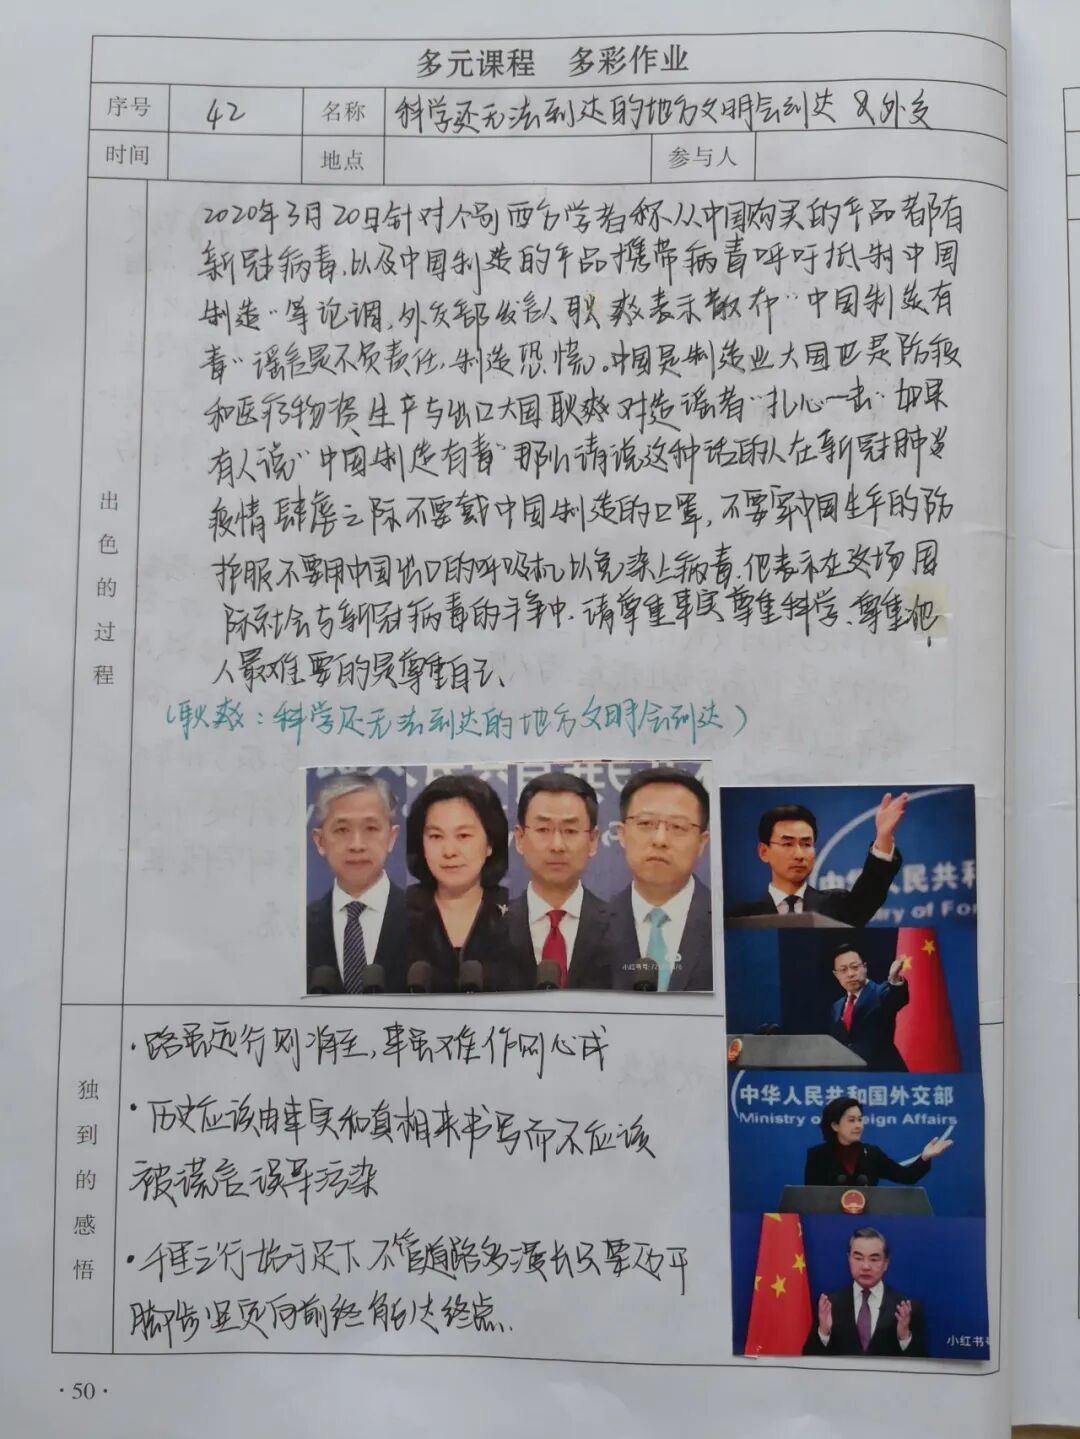 多元课程 多彩作业
序号 42 名称 科学还无法到达的地方文明会到达 &外交
时间 地点 参与人
出色的过程
2020年3月20日针对个别西方学者称"从中国购买的产品都有
新冠病毒,以及中国制造的产品携带病毒呼吁抵制中国
制造"等论调,外交部发言人耿爽表示散布"中国制造有
毒"谣言是不负责任,制造恐慌。中国是制造业大国也是防疫
和医疗物资生产与出口大国耿爽对造谣者"扎心一击"如果
有人说"中国制造有毒"那么请说这种话的人在新冠肺炎
疫情肆虐之际不要戴中国制造的口罩,不要穿中国生产的防
护服不要用中国出口的呼吸机以免染上病毒.他表示在这场国
际社会与新冠病毒的斗争中.请尊重事实尊重科学、尊重他
人最难要的是尊重自己、
(耿爽:科学还无法到达的地方文明会到达)
小红书号:
中华人民共和
Ministry of For
中华人民共和国外交部
Ministry of Foreign Affairs
小红书号
独到的感悟
·路虽远行则将至,事虽难作则必成
·历史应该由事实和真相来书写而不应该
被谎言误导污染
·千里之行始于足下不管道路多漫长只要迈开
脚步坚定向前终能到达终点.
·50·